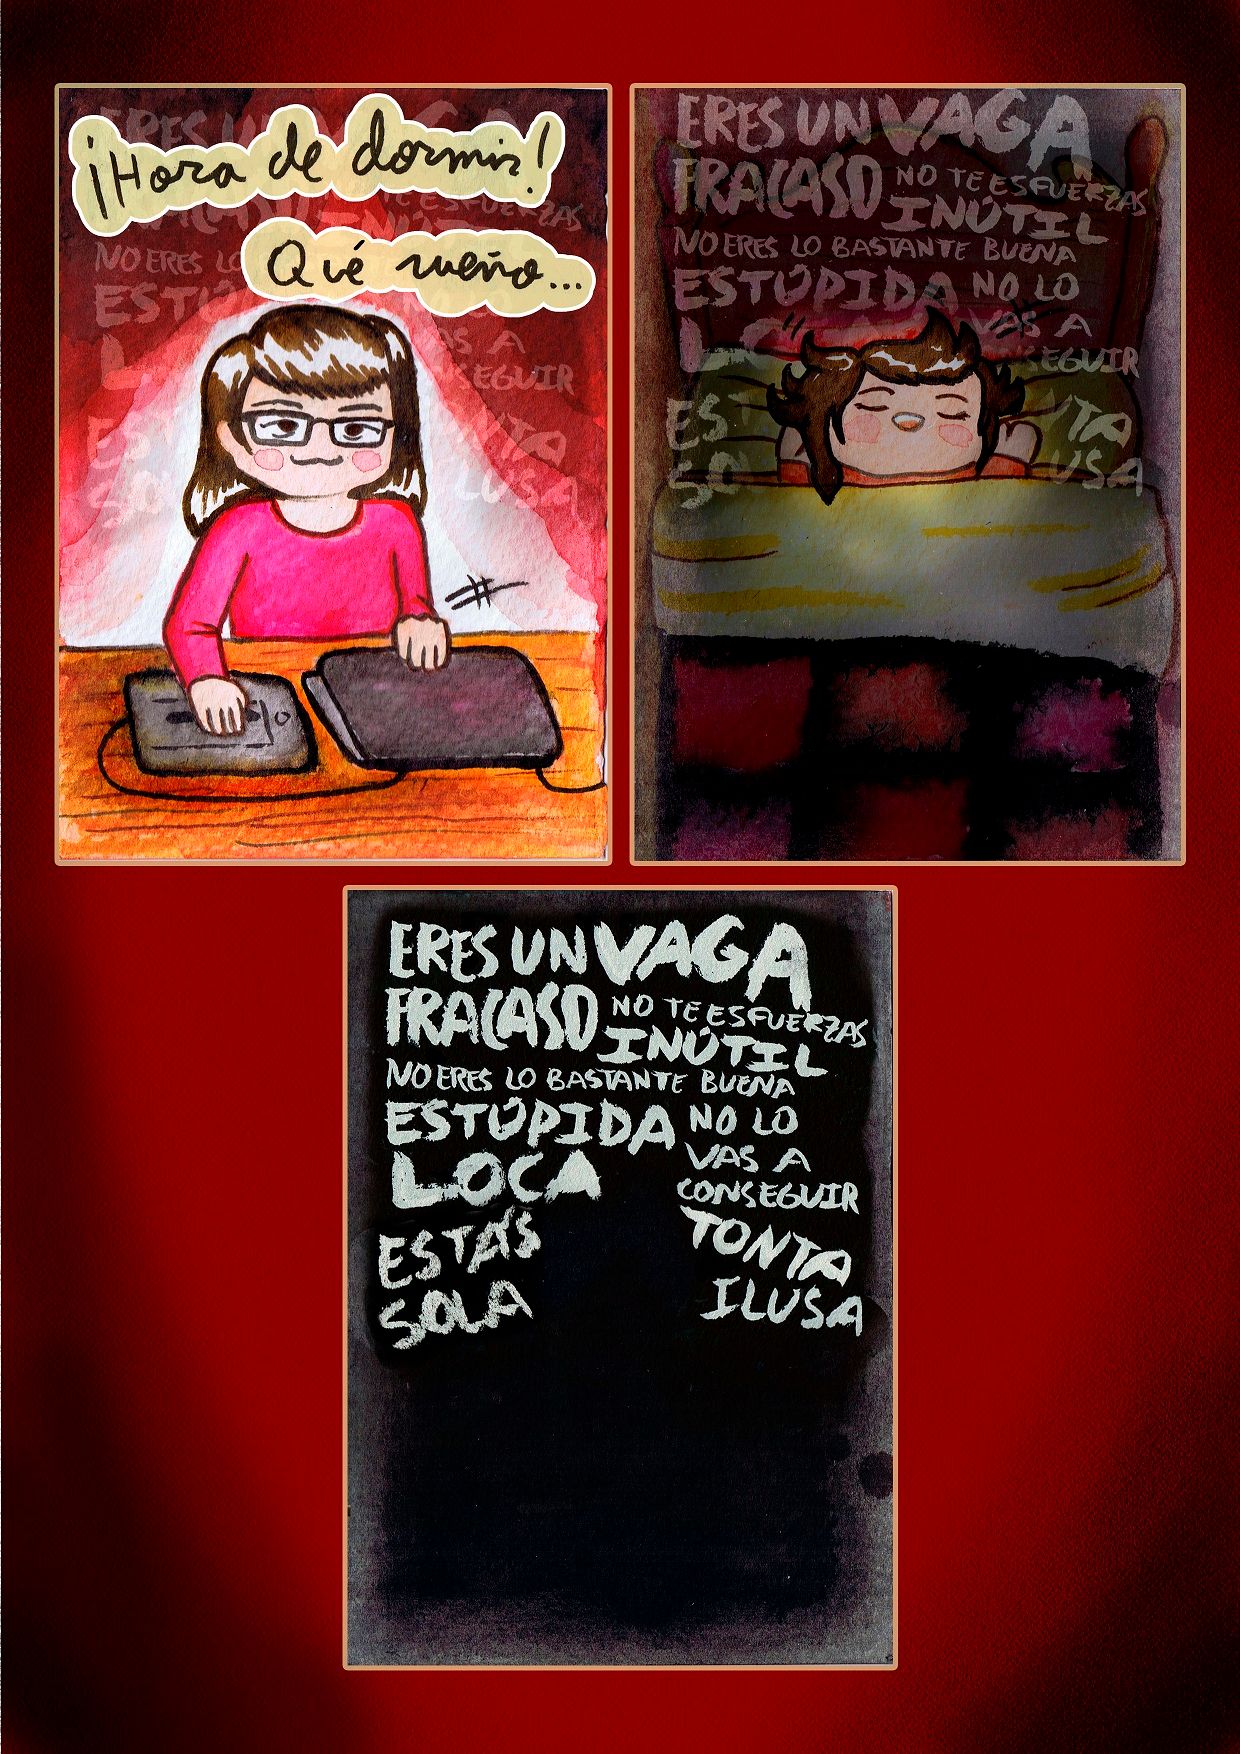 ¡Hora de dormir!
Qué sueño...
ERES UN VAGA
FRACASO
ESFUERZAS
INÚTIL
NO ERES LO
VAS A
ERES UN VAGA
FRACASO NO TE ESFUERZAS
INÚTIL
NO ERES LO BASTANTE BUENA
ESTÚPIDA NO LO
VAS A
ERES UN VAGA
FRACASO NO TE ESFUERZAS
INÚTIL
NO ERES LO BASTANTE BUENA
ESTÚPIDA NO LO
VAS A
LOCA CONSEGUIR
ESTÁS TONTA
SOLA ILUSA